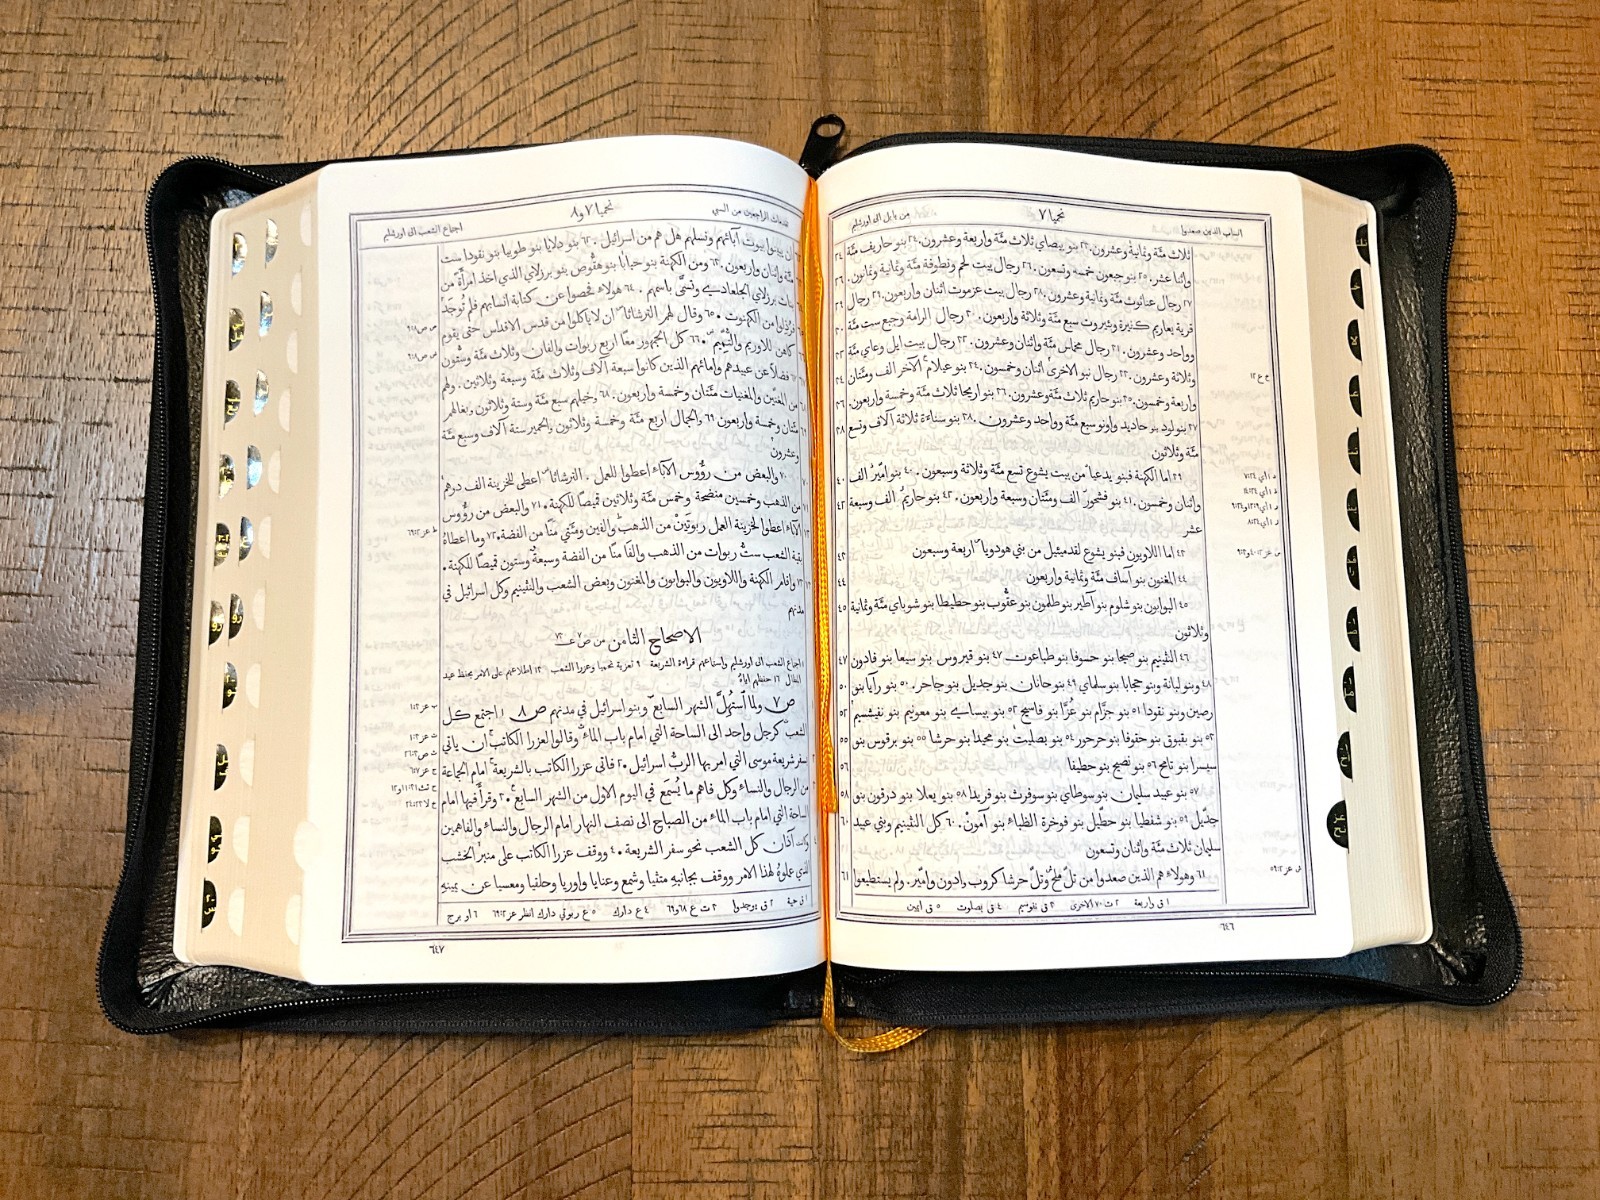 انساب الذين صعدوا
نحميا ٧
من بابل الى اورشليم
ثلاث مئة وثمانية وعشرون. ٢٣ بنو بيصاي ثلاث مئة واربعة وعشرون. ٢٤ بنو حاريف مئة
واثنا عشر. ٢٥ بنو جبعون خمسة وتسعون. ٢٦ رجال بيت لحم ونطوفة مئة وثمانية وثمانون.
٢٧ رجال عناثوث مئة وثمانية وعشرون. ٢٨ رجال بيت عزموت اثنان واربعون. ٢٩ رجال
قرية يعاريم كفيرة وبئيروت سبع مئة وثلاثة واربعون. ٣٠ رجال الرامة وجبع ست مئة
وواحد وعشرون. ٣١ رجال مخماس مئة واثنان وعشرون. ٣٢ رجال بيت ايل وعاي مئة
وثلاثة وعشرون. ٣٣ رجال نبو الاخرى اثنان وخمسون. ٣٤ بنو عيلام الآخر الف ومئتان
واربعة وخمسون. ٣٥ بنو حاريم ثلاث مئة وعشرون. ٣٦ بنو اريحا ثلاث مئة وخمسة واربعون.
٣٧ بنو لود بنو حاديد واونو سبع مئة وواحد وعشرون. ٣٨ بنو سناءة ثلاثة آلاف وتسع
مئة وثلاثون
٣٩ اما الكهنة فبنو يدعيا من بيت يشوع تسع مئة وثلاثة وسبعون. ٤٠ بنو امّير الف
واثنان وخمسون. ٤١ بنو فشحور الف ومئتان وسبعة واربعون. ٤٢ بنو حاريم الف وسبعة
عشر
٤٣ اما اللاويون فبنو يشوع لقدميئيل من بني هودويا اربعة وسبعون
٤٤ المغنون بنو آساف مئة وثمانية واربعون
٤٥ البوابون بنو شلوم بنو آطير بنو طلمون بنو عقوب بنو حطيطا بنو شوباي مئة وثمانية
وثلاثون
٤٦ النثينيم بنو صيحا بنو حسوفا بنو طباعوت ٤٧ بنو قيروس بنو سيعا بنو فادون
٤٨ وبنو لبانة وبنو حجابا بنو سلماي ٤٩ بنو حانان بنو جديل بنو جاحر. ٥٠ بنو رآيا بنو
رصين وبنو نقودا ٥١ بنو جزّام بنو عزّا بنو فاسيح ٥٢ بنو بيساي بنو معونيم بنو نفيشسيم
٥٣ بنو بقبوق بنو حقوفا بنو حرحور ٥٤ بنو بصليت بنو محيدا بنو حرشا ٥٥ بنو برقوس بنو
سيسرا بنو تامح ٥٦ بنو نصيح بنو حطيفا
٥٧ بنو عبيد سليمان بنو سوطاي بنو سوفرث بنو فريدا ٥٨ بنو يعلا بنو درقون بنو
جديل ٥٩ بنو شفطيا بنو حطيل بنو فوخرة الظباء بنو آمون. ٦٠ كل النثينيم وبني عبيد
سليمان ثلاث مئة واثنان وتسعون
٦١ وهؤلاء هم الذين صعدوا من تل ملح وتل حرشا كروب وادون وامّير. ولم يستطيعوا
٦٤٦
نحميا ٧ و ٨
اجتماع الشعب الى اورشليم
ان يبينوا بيوت آبائهم ونسلهم هل هم من اسرائيل. ٦٢ بنو دلايا بنو طوبيا بنو نقودا ست
مئة واثنان واربعون. ٦٣ ومن الكهنة بنو حبابا بنو هقوص بنو برزلاي الذي اخذ امرأة من
بنات برزلاي الجلعادي وتسمّى باسمهم. ٦٤ هؤلاء فحصوا عن كتابة انسابهم فلم توجد
فرذلوا من الكهنوت. ٦٥ وقال لهم الترشاثا ان لا ياكلوا من قدس الاقداس حتى يقوم
كاهن للاوريم والتميم. ٦٦ كل الجمهور معًا اربع ربوات والفان وثلاث مئة وستون
٦٧ فضلًا عن عبيدهم وامائهم الذين كانوا سبعة آلاف وثلاث مئة وسبعة وثلاثين. ولهم
من المغنين والمغنيات مئتان وخمسة واربعون. ٦٨ وخيلهم سبع مئة وستة وثلاثون وبغالهم
مئتان وخمسة واربعون ٦٩ والجمال اربع مئة وخمسة وثلاثون والحمير ستة آلاف وسبع مئة
وعشرون
٧٠ والبعض من رؤوس الآباء اعطوا للعمل. الترشاثا اعطى للخزينة الف درهم
من الذهب وخمسين منضحة وخمس مئة وثلاثين قميصًا للكهنة. ٧١ والبعض من رؤوس
الآباء اعطوا لخزينة العمل ربوتين من الذهب والفين ومئتي منًا من الفضة. ٧٢ وما اعطاه
بقية الشعب ست ربوات من الذهب والفا منًا من الفضة وسبعة وستون قميصًا للكهنة.
٧٣ واقام الكهنة واللاويون والبوابون والمغنون وبعض الشعب والنثينيم وكل اسرائيل في
مدنهم
الاصحاح الثامن من ص ٧ ع ٧٣
١ اجتماع الشعب الى اورشليم واستماعهم قراءة الشريعة ٩ تعزية نحميا وعزرا الشعب ١٣ اطلاعهم على الامر بحفظ عيد
المظال ١٦ حفظهم اياه
ص ٧ ولما استهلّ الشهر السابع وبنو اسرائيل في مدنهم ص ٨ ١ اجتمع كل
الشعب كرجل واحد الى الساحة التي امام باب الماء وقالوا لعزرا الكاتب ان ياتي
بسفر شريعة موسى التي امر بها الرب اسرائيل. ٢ فاتى عزرا الكاتب بالشريعة امام الجماعة
من الرجال والنساء وكل فاهم ما يُسمَع في اليوم الاول من الشهر السابع. ٣ وقرأ فيها امام
الساحة التي امام باب الماء من الصباح الى نصف النهار امام الرجال والنساء والفاهمين
وكانت آذان كل الشعب نحو سفر الشريعة. ٤ ووقف عزرا الكاتب على منبر الخشب
الذي عملوه لهذا الامر ووقف بجانبه متثيا وشمع وعنايا واوريا وحلقيا ومعسيا عن يمينه
٦٤٧